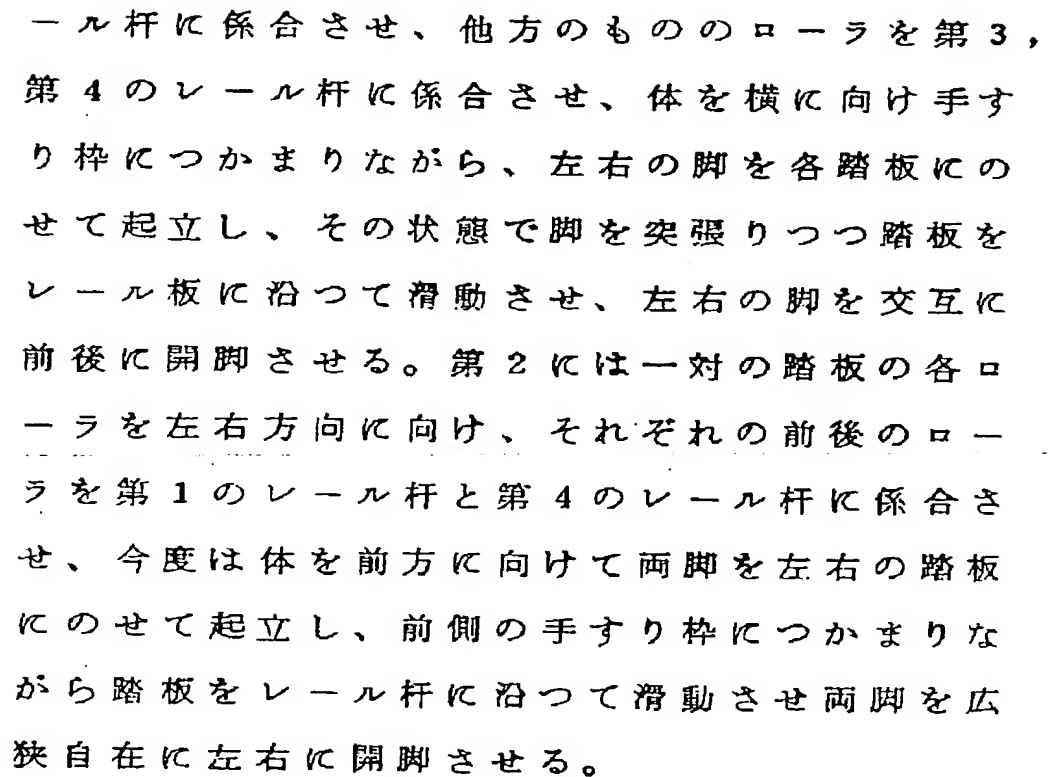 ール杆に係合させ、他方のもののローラを第3，
第4のレール杆に係合させ、体を横に向け手す
り枠につかまりながら、左右の脚を各踏板にの
せて起立し、その状態で脚を突張りつつ踏板を
レール板に沿つて滑動させ、左右の脚を交互に
前後に開脚させる。第2には一対の踏板の各ロ
ーラを左右方向に向け、それぞれの前後のロー
ラを第1のレール杆と第4のレール杆に係合さ
せ、今度は体を前方に向けて両脚を左右の踏板
にのせて起立し、前側の手すり枠につかまりな
がら踏板をレール杆に沿つて滑動させ両脚を広
狭自在に左右に開脚させる。